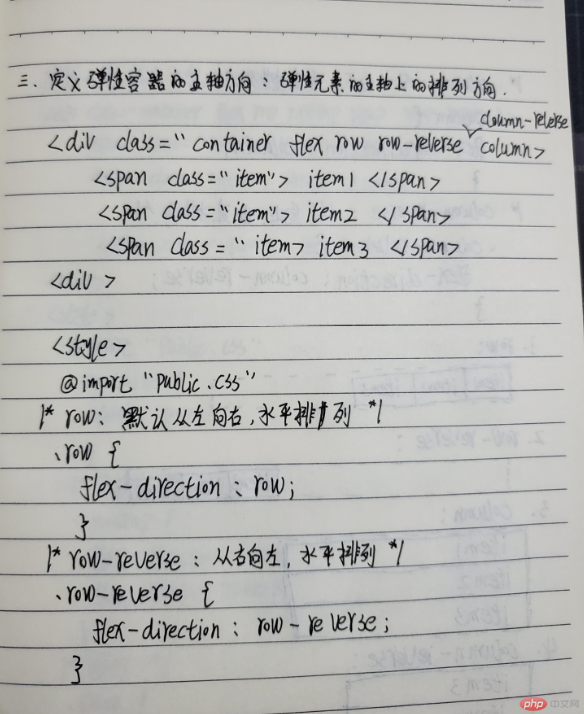 三、定义弹性容器的主轴方向：弹性元素的主轴上的排列方向.
column-reverse
<div class="container flex row row-reverse column>
<span class="item"> item1 </span>
<span class="item"> item2 </span>
<span class="item> item3 </span>
<div>
<style>
@import "public.css"
/* row: 默认从左向右,水平排列 */
.row {
flex-direction : row;
}
/* row-reverse : 从右向左,水平排列 */
.row-reverse {
flex-direction : row-reverse ;
}
php 中文网